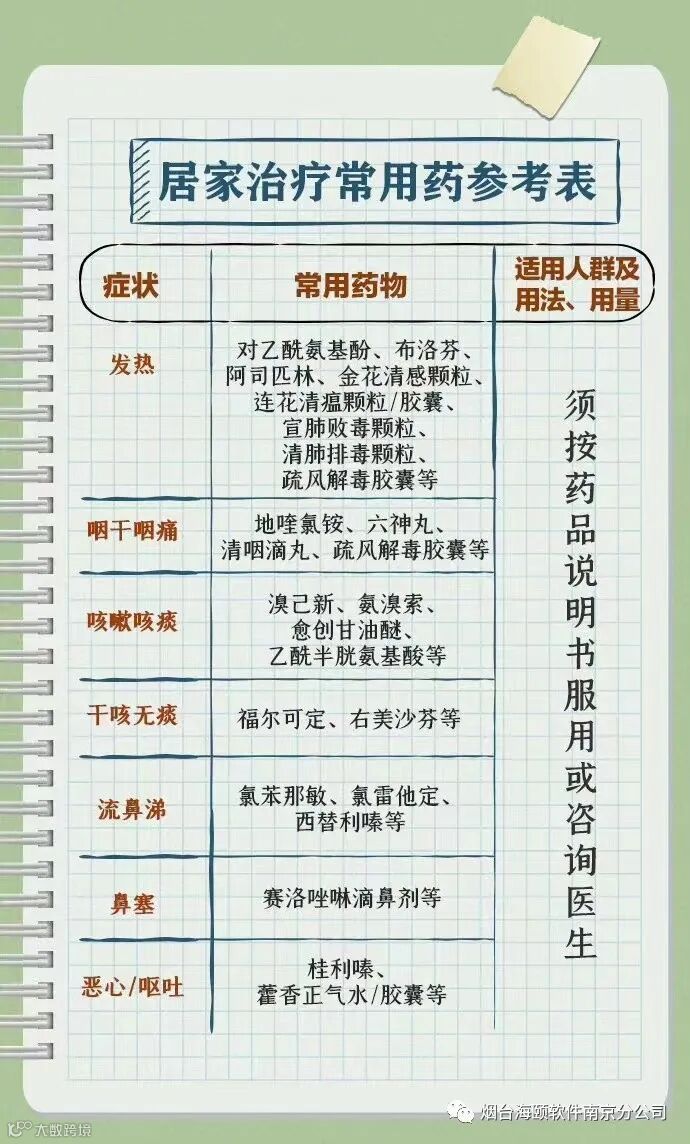 居家治疗常用药参考表
症状
常用药物
适用人群及
用法、用量
发热
对乙酰氨基酚、布洛芬、
阿司匹林、金花清感颗粒、
连花清瘟颗粒/胶囊、
宣肺败毒颗粒、
清肺排毒颗粒、
疏风解毒胶囊等
咽干咽痛
地喹氯铵、六神丸、
清咽滴丸、疏风解毒胶囊等
咳嗽咳痰
溴己新、氨溴索、
愈创甘油醚、
乙酰半胱氨基酸等
干咳无痰
福尔可定、右美沙芬等
流鼻涕
氯苯那敏、氯雷他定、
西替利嗪等
鼻塞
赛洛唑啉滴鼻剂等
恶心/呕吐
桂利嗪、
藿香正气水/胶囊等
须按药品说明书服用或咨询医生
烟台海颐软件南京分公司
大数跨境